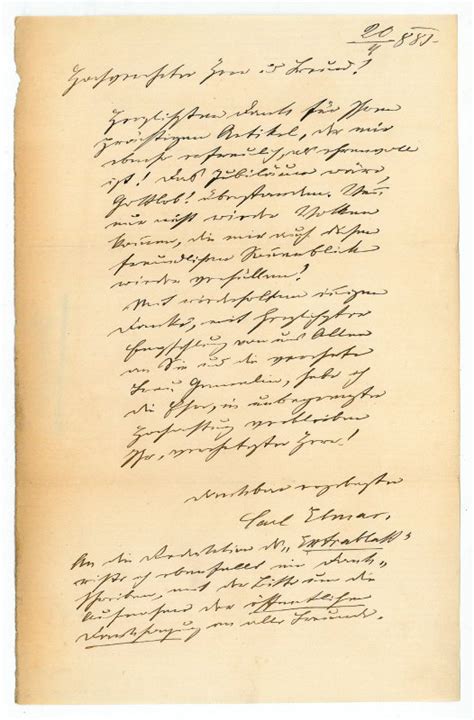 20/4 881.
Hochverehrter Herr und Freund!
Herzlichsten Dank für Ihren
prächtigen Artikel, der mir
ebenso erfreulich, als ehrenvoll
ist! Das Jubiläum wäre,
Gottlob! überstanden. Wenn
nur nicht wieder Wolken
kommen, die mir auch diesen
freundlichen Sonnenblick
wieder verhüllen!
Mit wiederholtem innigen
Danke, mit herzlichster
Empfehlung von uns Allen
an Sie und die verehrte
Frau Gemalin, habe ich
die Ehre, in unbegrenzter
Hochachtung verbleiben
Ihr, verehrtester Herr!
dankbar ergebenster
Carl Elmar.
An die Redaktion des „Extrablatt“
richte ich ebenfalls ein Dank-
schreiben, mit der Bitte um die
Aufnahme der öffentlichen
Danksagung an alle Freunde.